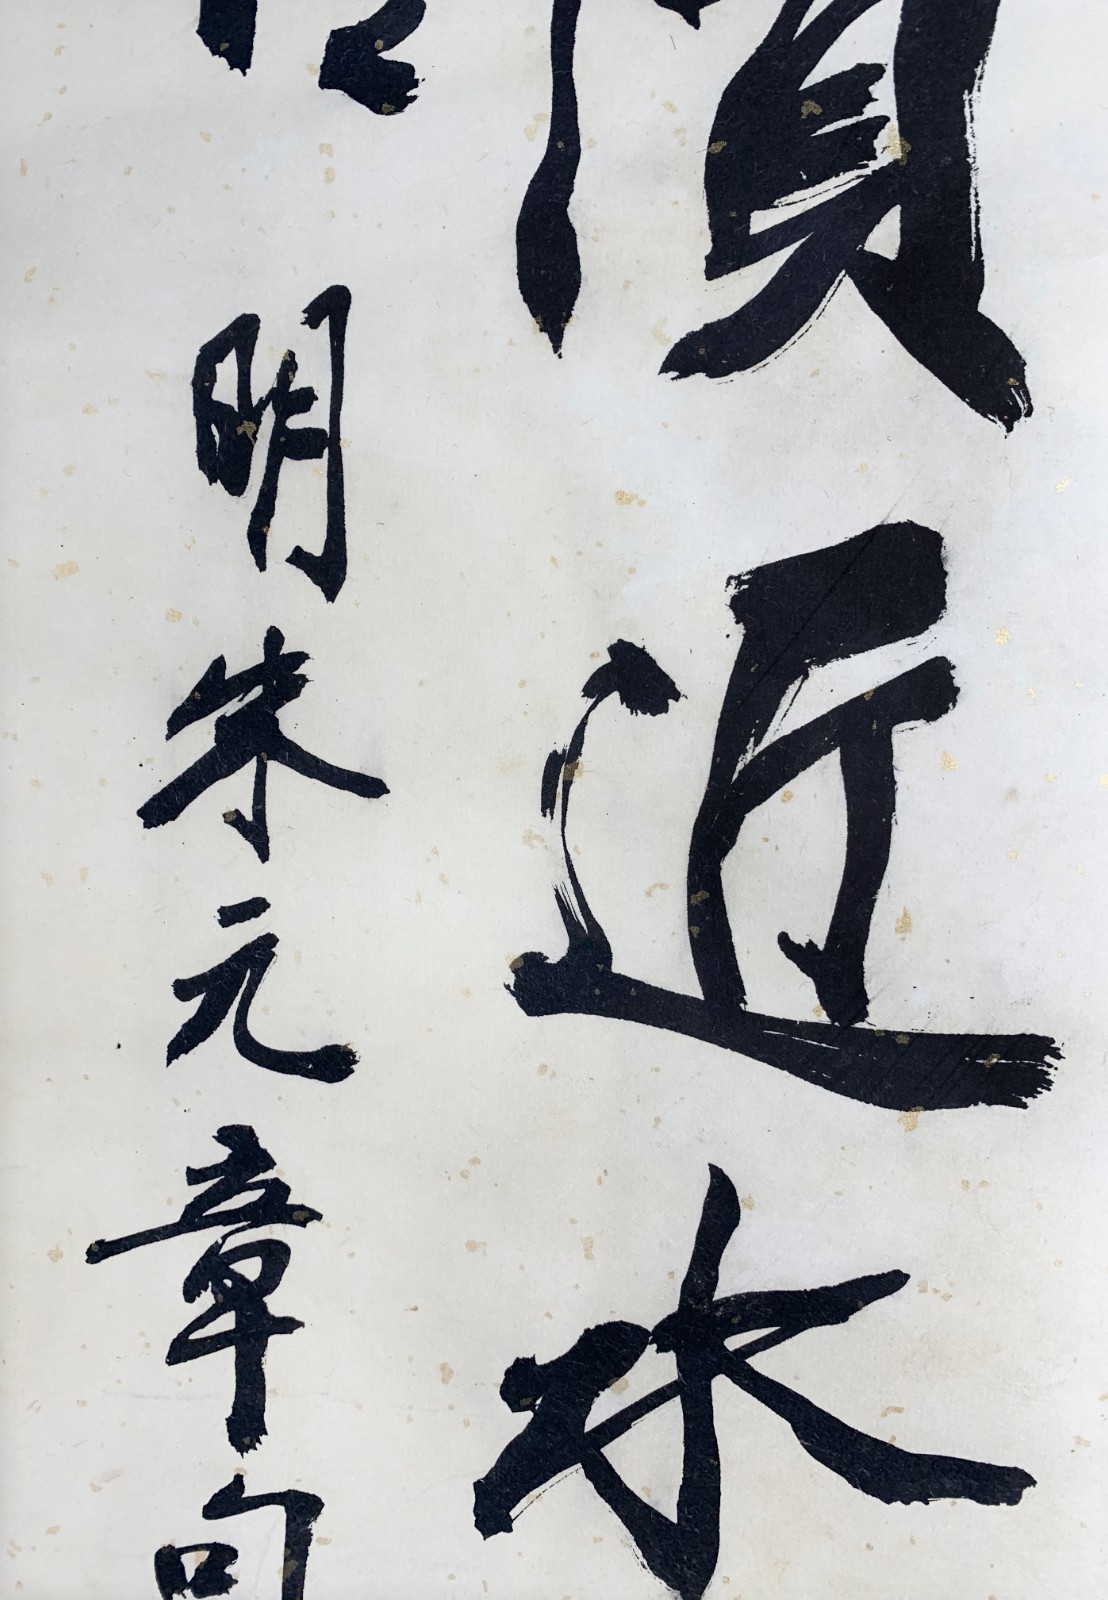 近水
明朱元章句